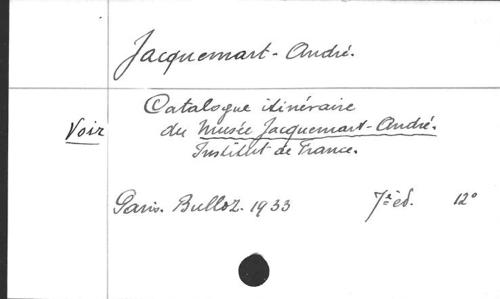 Jacquemart-André.
Catalogue itinéraire
Voir du Musée Jacquemart-André.
Institut de France.
Paris. Bulloz. 1933 7e éd. 12°